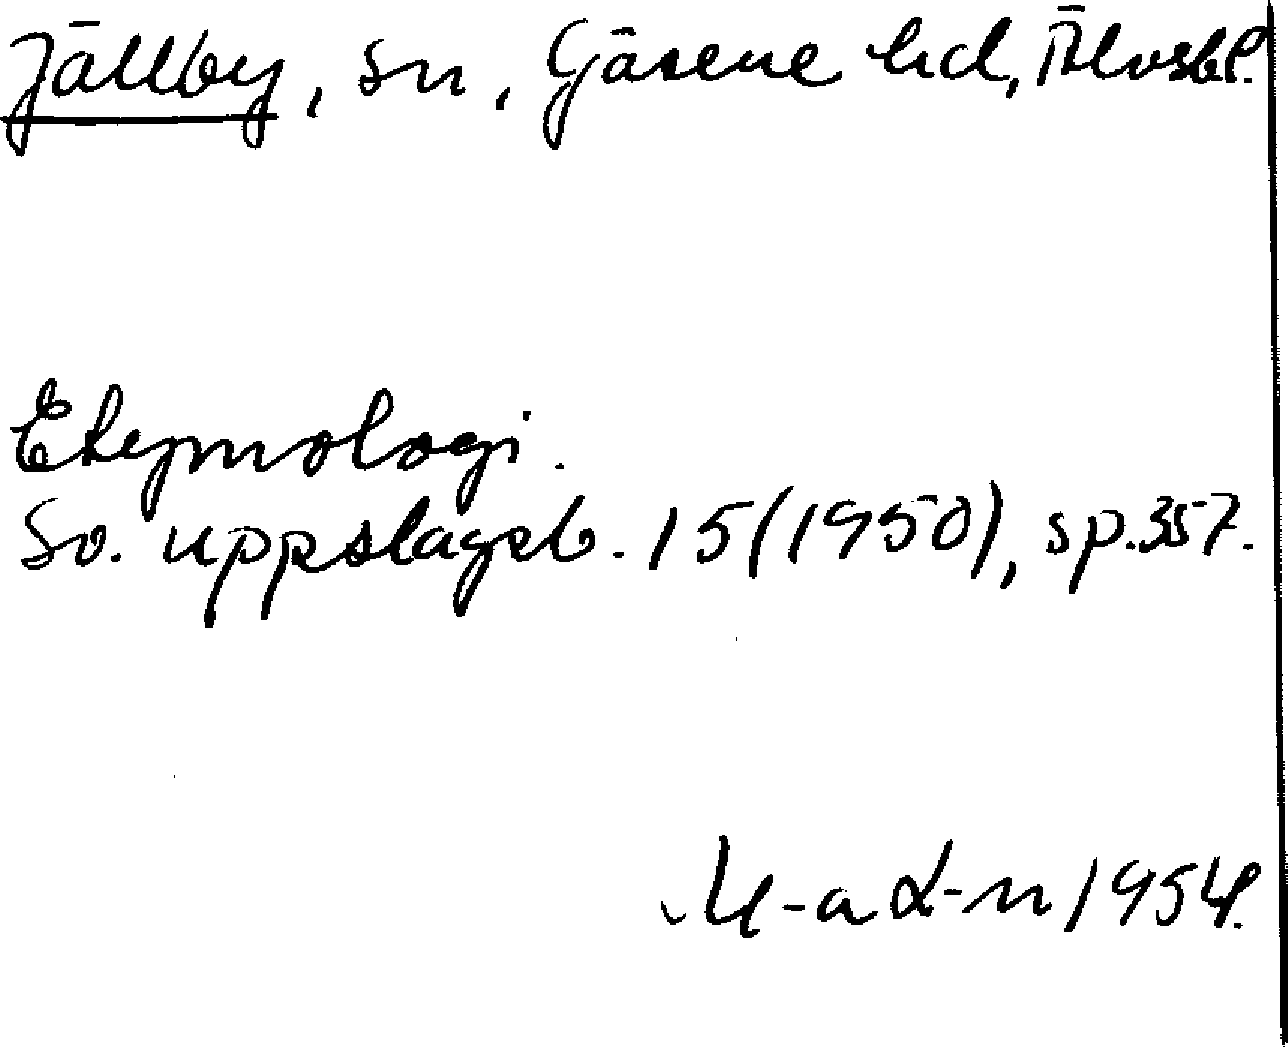 Jällby, sn, Gäsene hd, Älvsbl.
Etymologi.
Sv. uppslagsb. 15(1950), sp.357.
M-a L-n 1954.